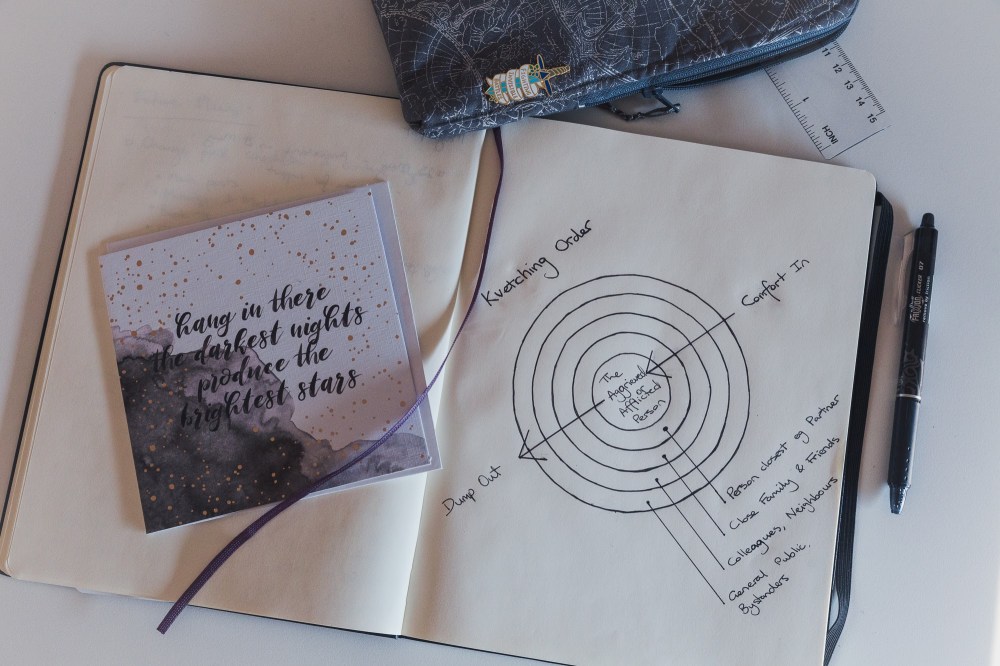 hang in there
the darkest nights
produce the
brightest stars
Kvetching Order
Comfort In
The
Aggrieved
or
Afflicted
Person
Dump Out
Person closest eg Partner
Close Family & Friends
Colleagues, Neighbours
General Public.
Bystanders
11 12 13 14 15
INCH